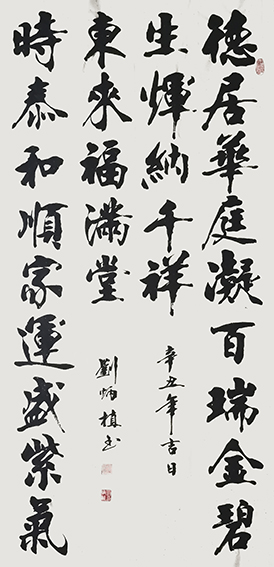 德居華庭凝百瑞金碧
生輝納千祥
辛丑年吉日
時泰和順家運盛紫氣
東來福滿堂
劉炳植书